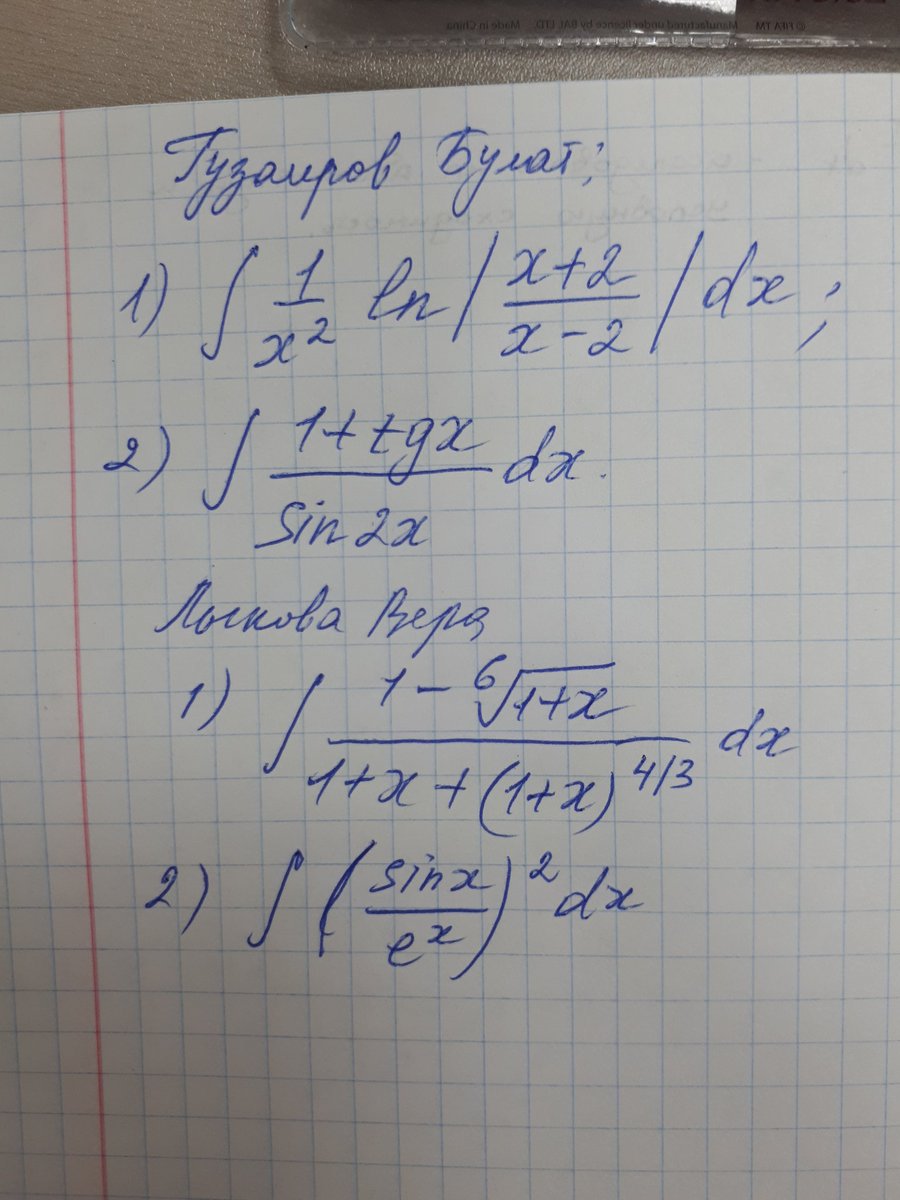 © FIFA TM Manufactured under licence by BAL LTD. Made in China
Гузаиров Булат;
1) ∫ 1/x² ln |(x+2)/(x-2)| dx;
2) ∫ (1+tgx)/(sin 2x) dx.
Лыскова Вера
1) ∫ (1-⁶√(1+x))/(1+x+(1+x)^(4/3)) dx
2) ∫ (sinx/eˣ)² dx